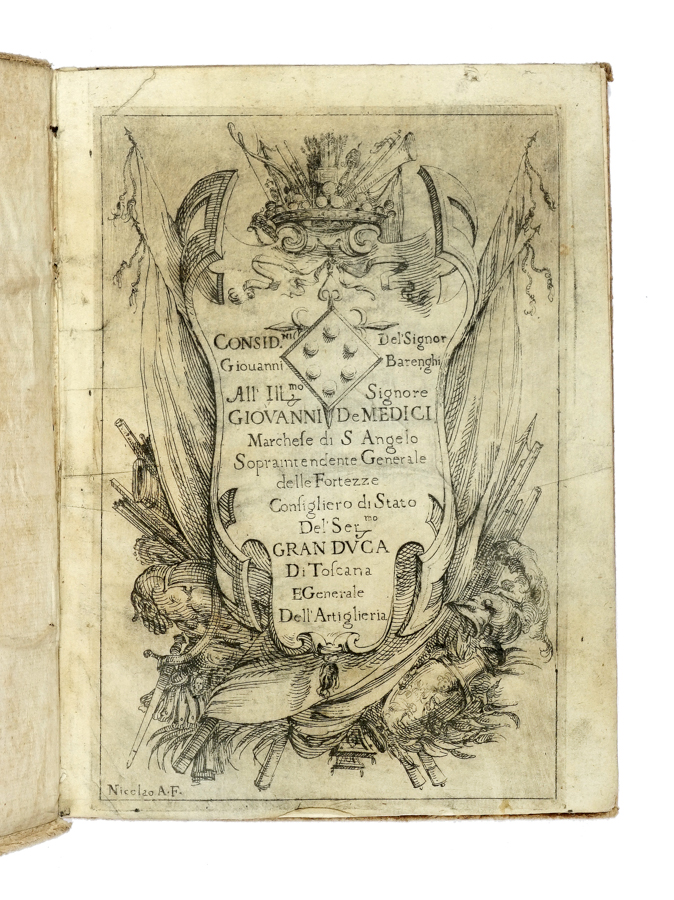 CONSID.NI Del'Signor
Giouanni Barenghi
All' Ill.mo Signore
GIOVANNI De MEDICI
Marchese di S Angelo
Sopraintendente Generale
delle Fortezze
Consigliero di Stato
Del' Ser.mo
GRAN DVCA
Di Toscana
E Generale
Dell'Artiglieria
A.F.